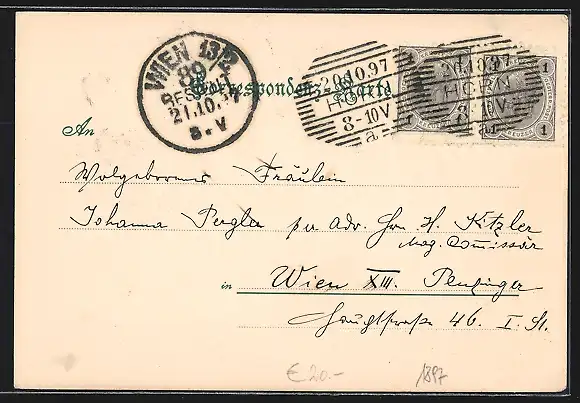 WIEN 13/2
89
BESTELLT
21.10.97
8-V
Correspondenz-Karte
20.10.97
HORN
8-10V
a
20.10.97
HORN
1
1
KREUZER
1
1
An
Wolgeborenes Fräulein
Johanna Pergler pr. Adr. Hrn. H. Kitzler
Mag. Comissär
in Wien XIII. Penzinger
Hauptstraße 46. I. St.
€ 20.-
1897